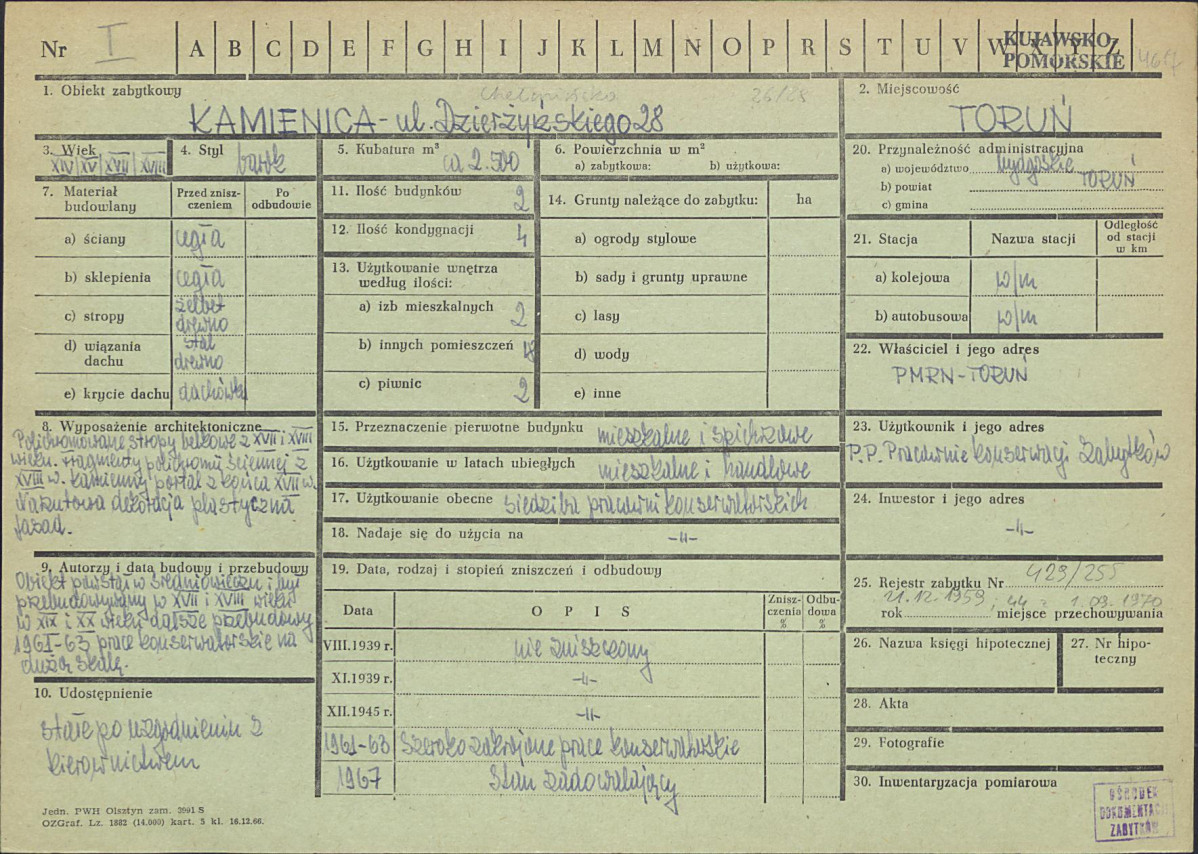 Nr I A B C D E F G H I J K L M N O P R S T U V W X Y Z
KUJAWSKO
POMORSKIE
1. Obiekt zabytkowy
Chełmińska 26/28
KAMIENICA - ul. Dzierżyńskiego 28
2. Miejscowość
TORUŃ
3. Wiek
XIV XV XVII XVIII
4. Styl
barok
5. Kubatura m³
ca 2.500
6. Powierzchnia w m²
a) zabytkowa: b) użytkowa:
7. Materiał
budowlany
Przed znisz-
czeniem
Po
odbudowie
a) ściany cegła
b) sklepienia cegła
c) stropy żelbet
drewno
d) wiązania
dachu
stal
drewno
e) krycie dachu dachówka
8. Wyposażenie architektoniczne
Polichromowane stropy belkowe z XVII i XVIII
wieku. Fragmenty polichromii ściennej z
XVIII w. Kamienny portal z końca XVII w.
Narzutowa dekoracja plastyczna
fasad.
9. Autorzy i data budowy i przebudowy
Obiekt powstał w średniowieczu i był
przebudowywany w XVII i XVIII wieku
w XIX i XX wieku dalsze przebudowy
1961-63 prace konserwatorskie na
dużą skalę.
10. Udostępnienie
stałe po uzgodnieniu z
kierownictwem
11. Ilość budynków 2
12. Ilość kondygnacji 4
13. Użytkowanie wnętrza
według ilości:
a) izb mieszkalnych 2
b) innych pomieszczeń
c) piwnic 2
14. Grunty należące do zabytku: ha
a) ogrody stylowe
b) sady i grunty uprawne
c) lasy
d) wody
e) inne
15. Przeznaczenie pierwotne budynku mieszkalne i spichrzowe
16. Użytkowanie w latach ubiegłych mieszkalne i handlowe
17. Użytkowanie obecne siedziba pracowni konserwatorskich
18. Nadaje się do użycia na -"-
19. Data, rodzaj i stopień zniszczeń i odbudowy
Data O P I S Znisz-
czenia
%
Odbu-
dowa
%
VIII.1939 r. nie zniszczony
XI.1939 r. -"-
XII.1945 r. -"-
1961-63 Szeroko zakrojone prace konserwatorskie
1967 Stan zadowalający
20. Przynależność administracyjna
a) województwo bydgoskie
b) powiat TORUŃ
c) gmina
21. Stacja Nazwa stacji Odległość
od stacji
w km
a) kolejowa w/m
b) autobusowa w/m
22. Właściciel i jego adres
PMRN-TORUŃ
23. Użytkownik i jego adres
P.P. Pracownie Konserwacji Zabytków
24. Inwestor i jego adres
-"-
25. Rejestr zabytku Nr 429/255
21.12.1959; 44 - 1.09.1970
rok miejsce przechowywania
26. Nazwa księgi hipotecznej
27. Nr hipo-
teczny
28. Akta
29. Fotografie
30. Inwentaryzacja pomiarowa
OŚRODEK
DOKUMENTACJI
ZABYTKÓW
Jedn. PWH Olsztyn zam. 2991 S
OZGraf. Lz. 1882 (14.000) kart. 5 kl. 16.12.66.